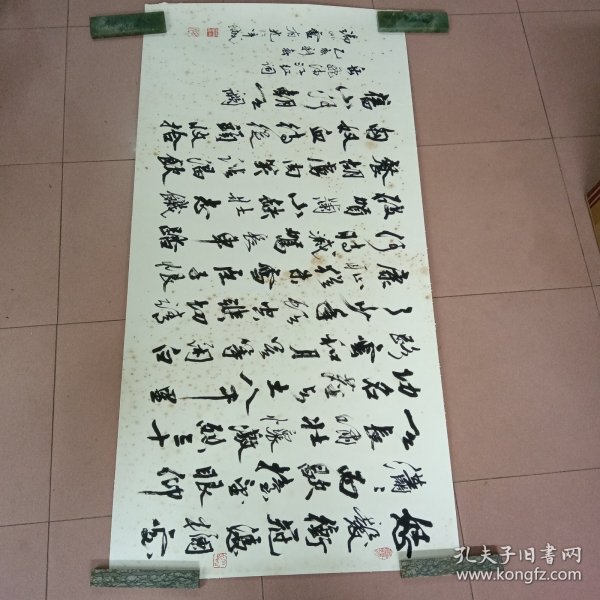 怒髮衝冠憑欄處
瀟瀟雨歇擡望眼仰
天長嘯壯懷激烈三十
功名塵與土八千里
路雲和月莫等閑白
了少年頭空悲切靖
康恥猶未雪臣子恨
何時滅駕長車踏
破賀蘭山缺壯志飢
餐胡虜肉笑談渴飲
匈奴血待從頭收拾
舊山河朝天闕
岳飛滿江紅詞
乙亥
孔夫子旧书网
www.kongfz.com